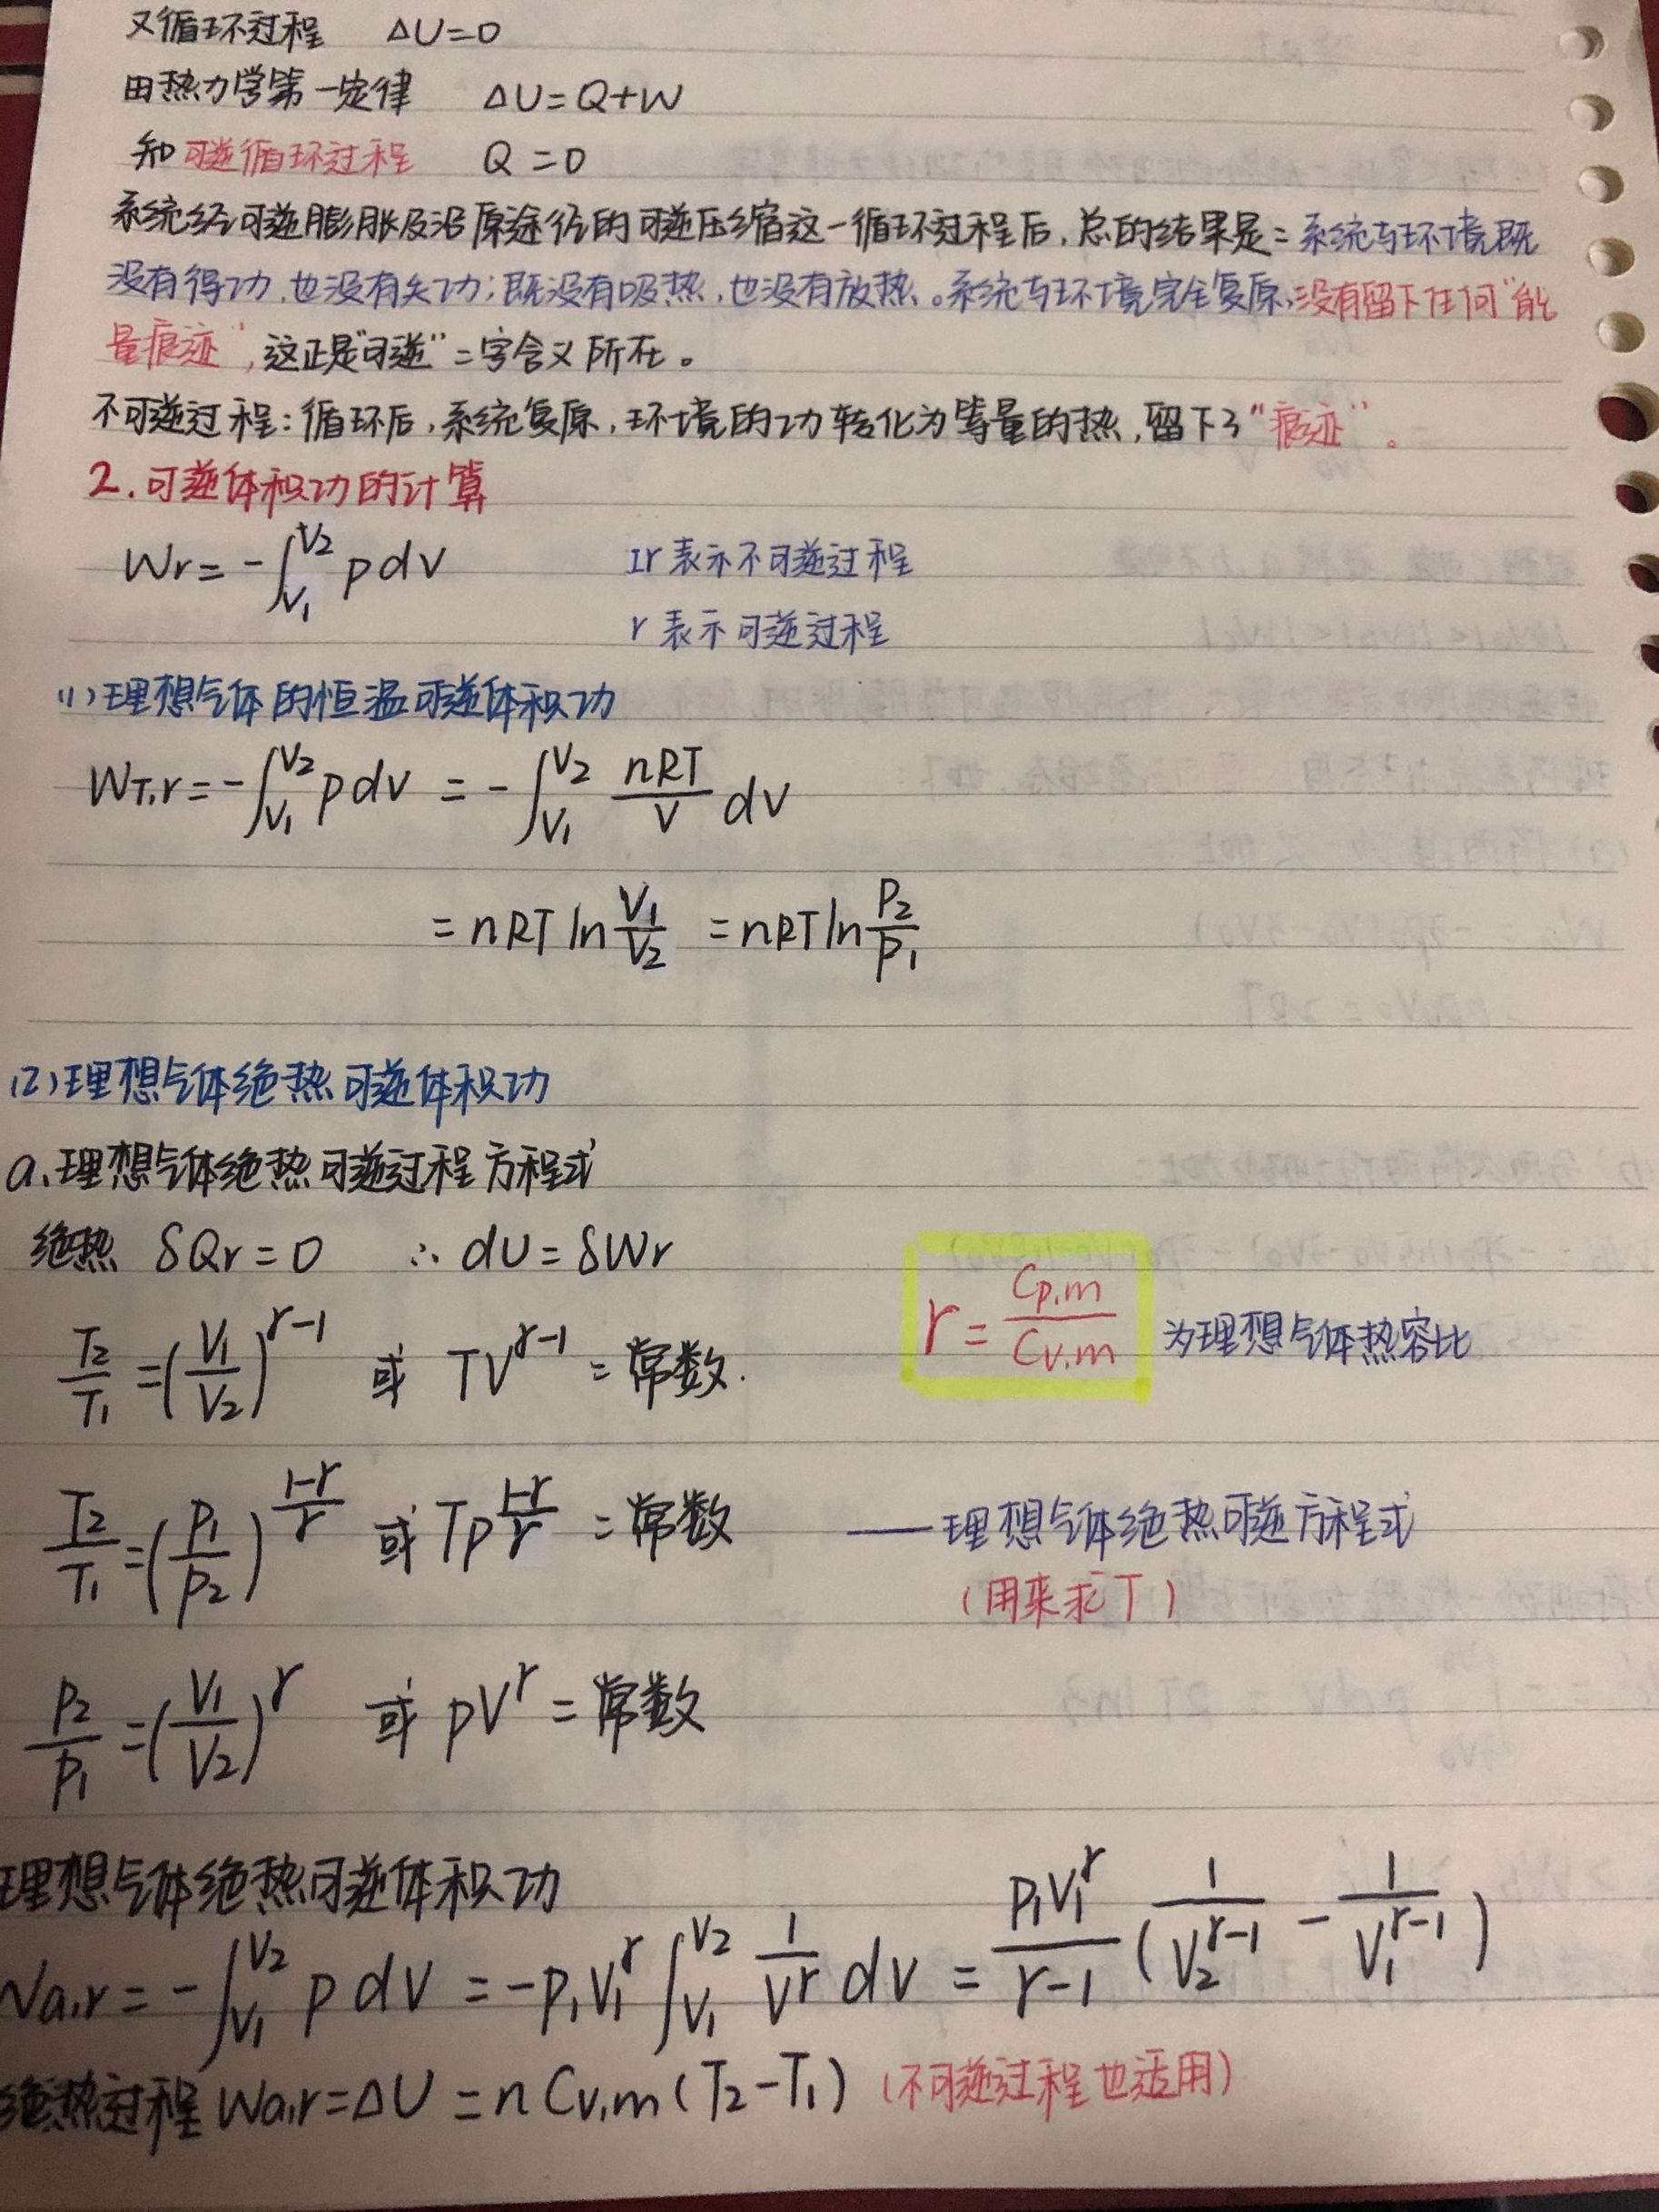 又循环过程 ΔU=0
由热力学第一定律 ΔU=Q+W
知可逆循环过程 Q=0
系统经可逆膨胀及沿原途径的可逆压缩这一循环过程后,总的结果是:系统与环境既
没有得功,也没有失功;既没有吸热,也没有放热。系统与环境完全复原,没有留下任何"能
量痕迹",这正是"可逆"二字含义所在。
不可逆过程:循环后,系统复原,环境的功转化为等量的热,留下了"痕迹"。
2.可逆体积功的计算
Wr=-∫_{V₁}^{V₂} pdV Ir表示不可逆过程
r表示可逆过程
(1)理想气体的恒温可逆体积功
W_{T,r}=-∫_{V₁}^{V₂} pdV = -∫_{V₁}^{V₂} \frac{nRT}{V} dV
=nRT ln\frac{V₁}{V₂} =nRT ln\frac{P₂}{P₁}
(2)理想气体绝热可逆体积功
a.理想气体绝热可逆过程方程式
绝热 δQr=0 ∴dU=δWr
\frac{T₂}{T₁}=(\frac{V₁}{V₂})^{γ-1} 或 TV^{γ-1}=常数. γ=\frac{Cp,m}{Cv,m} 为理想气体热容比
\frac{T₂}{T₁}=(\frac{P₁}{P₂})^{\frac{1-γ}{γ}} 或 Tp^{\frac{1-γ}{γ}}=常数 ——理想气体绝热可逆方程式
(用来求T)
\frac{P₂}{P₁}=(\frac{V₁}{V₂})^γ 或 pV^γ=常数
理想气体绝热可逆体积功
Wa,r=-∫_{V₁}^{V₂} pdV=-p₁V₁^γ∫_{V₁}^{V₂} \frac{1}{V^γ} dV=\frac{P₁V₁^γ}{γ-1}(\frac{1}{V₂^{γ-1}}-\frac{1}{V₁^{γ-1}})
绝热过程 Wa,r=ΔU=nCv,m(T₂-T₁) (不可逆过程也适用)